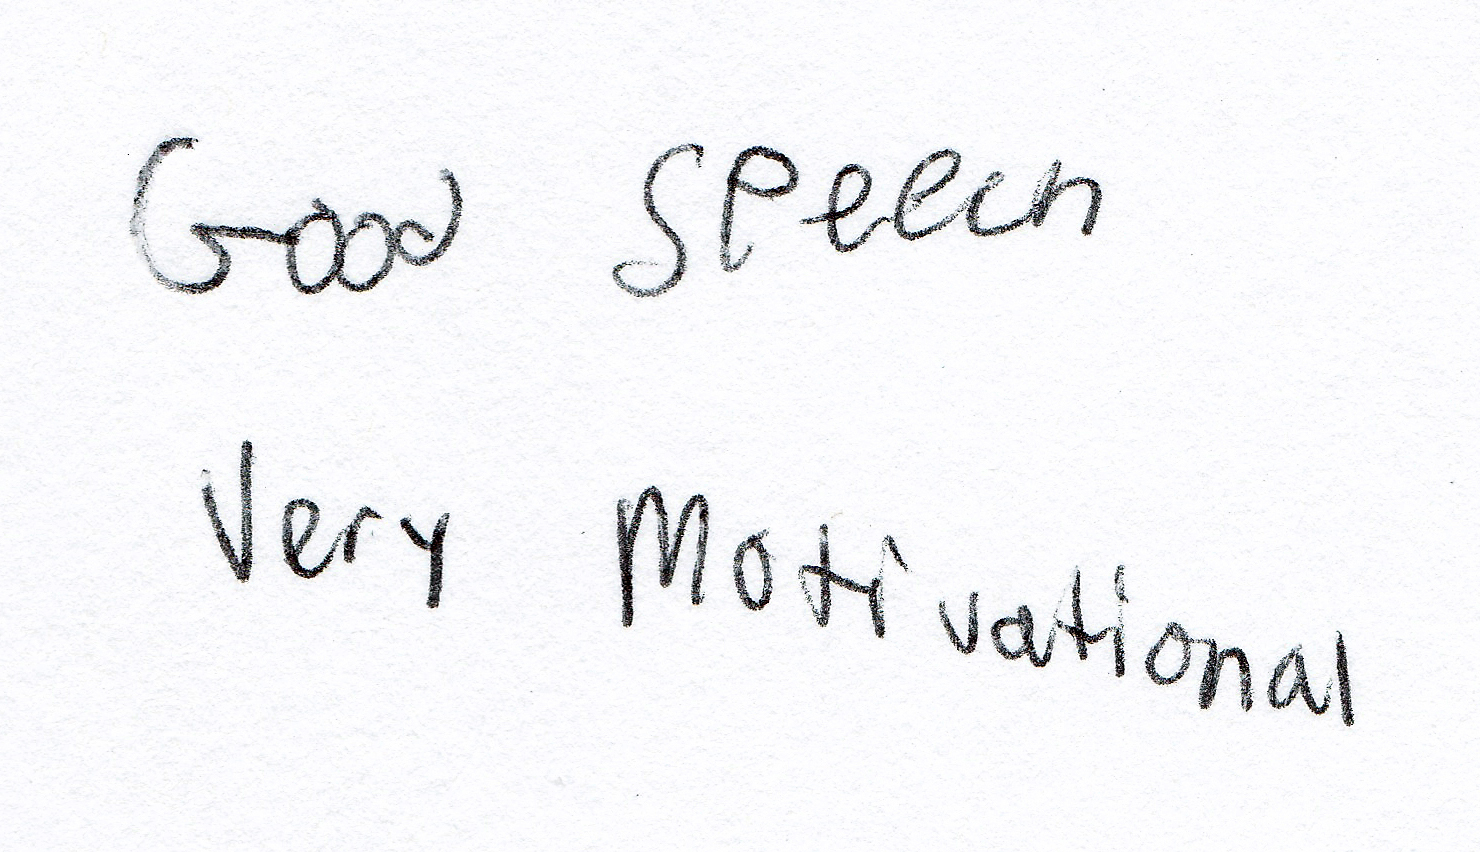 Good Speech
Very Motivational